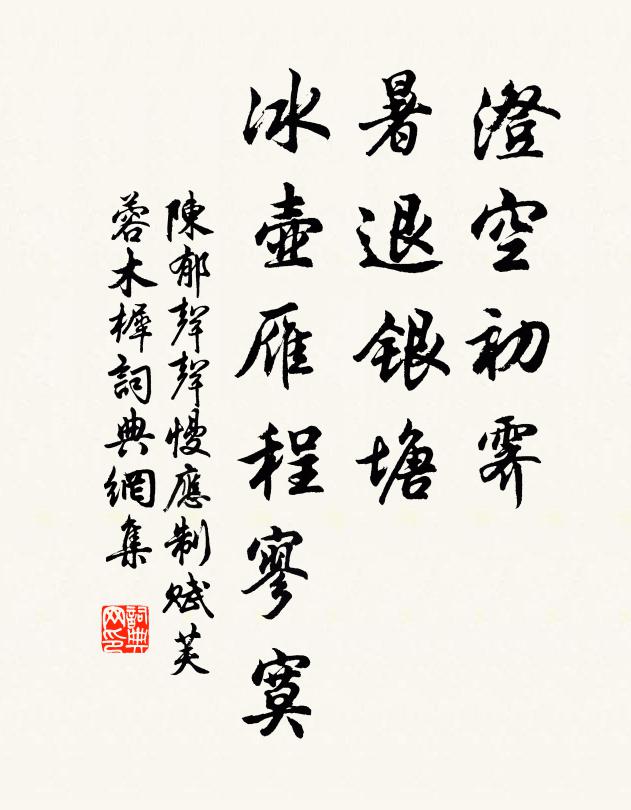 澄空初霽
暑退銀塘
冰壺雁程寥寞
陳郁聲聲慢應制賦芙
蓉木樨詞典網集
詞典网印